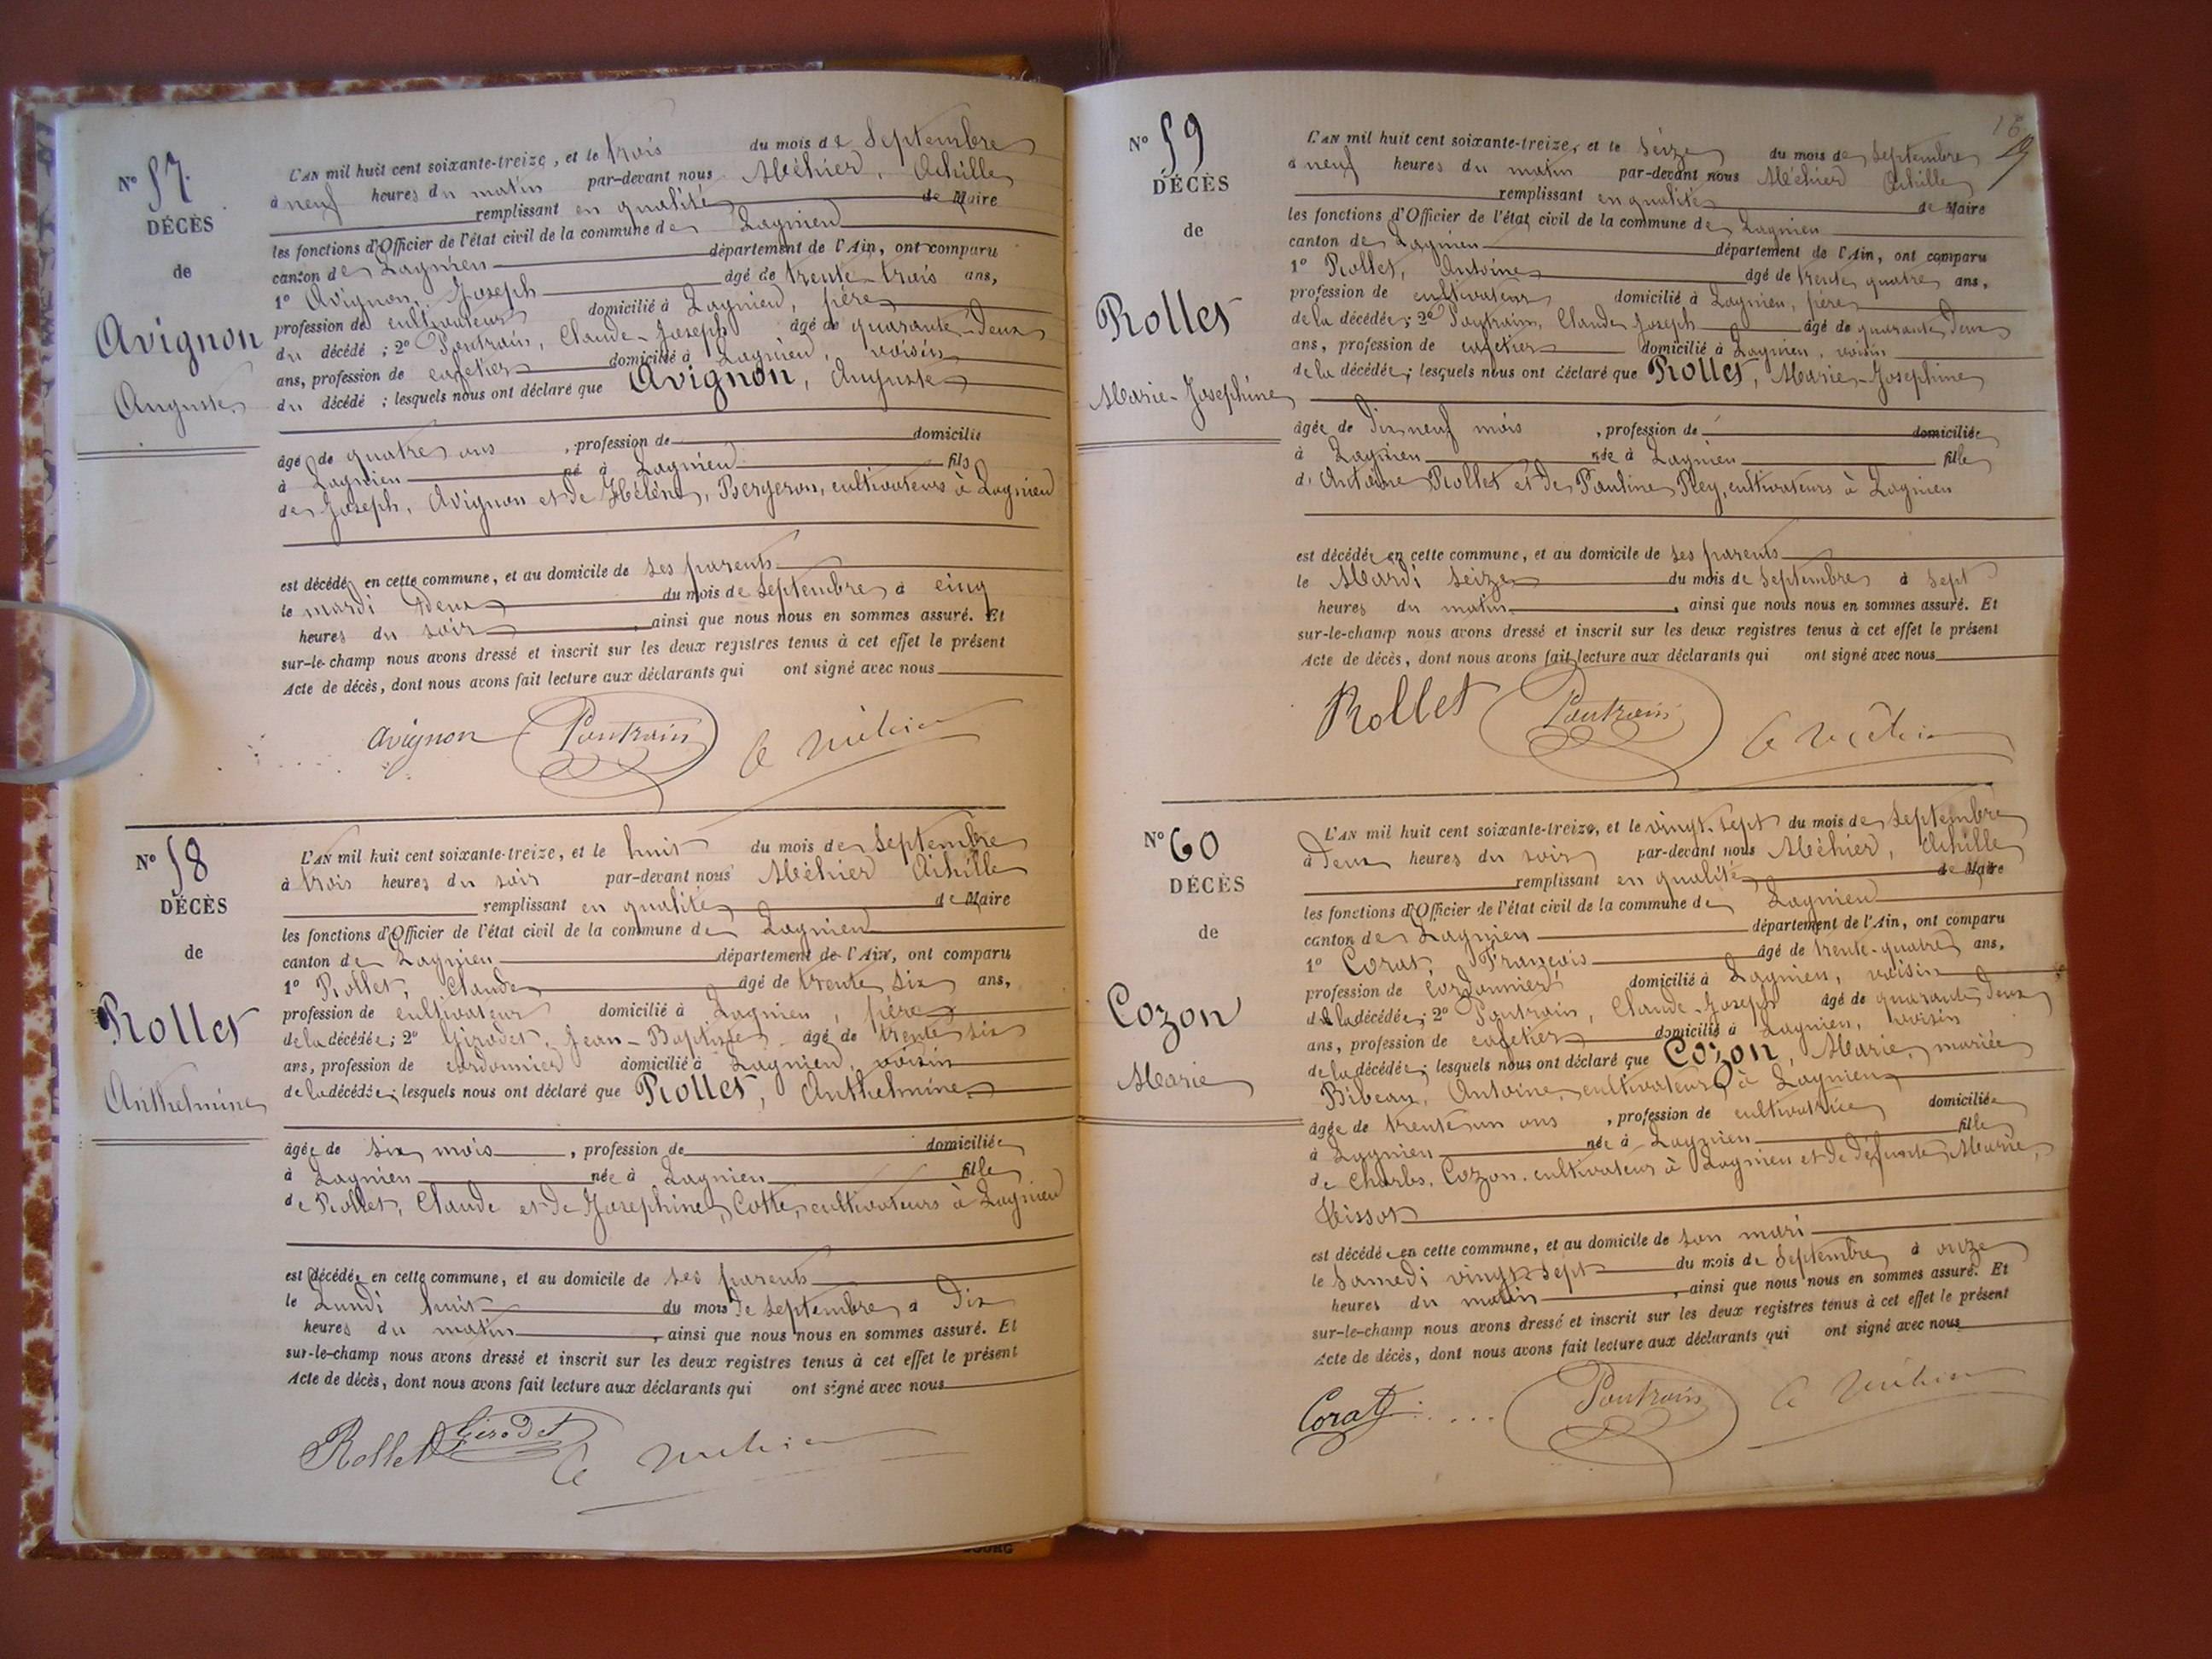 N° 57.
DÉCÈS
de
Avignon
Auguste
L'AN mil huit cent soixante-treize, et le trois du mois de Septembre
à neuf heures du matin par-devant nous Méhier, Achille
remplissant en qualité de Maire
les fonctions d'Officier de l'état civil de la commune de Lagnieu
canton de Lagnieu département de l'Ain, ont comparu
1° Avignon, Joseph âgé de trente-trois ans,
profession de cultivateur domicilié à Lagnieu, père
du décédé ; 2° Poutrain, Claude-Joseph âgé de quarante-deux
ans, profession de cafetier domicilié à Lagnieu, voisin
du décédé ; lesquels nous ont déclaré que Avignon, Auguste
âgé de quatre ans , profession de domicilié
à Lagnieu né à Lagnieu fils
de Joseph, Avignon et de Hélène, Bergeron, cultivateurs à Lagnieu
est décédé en cette commune, et au domicile de ses parents
le mardi deux du mois de Septembre à cinq
heures du soir , ainsi que nous nous en sommes assuré. Et
sur-le-champ nous avons dressé et inscrit sur les deux registres tenus à cet effet le présent
Acte de décès, dont nous avons fait lecture aux déclarants qui ont signé avec nous
avignon Poutrain A Méhier
N° 58
DÉCÈS
de
Rollet
Anthelmine
L'AN mil huit cent soixante-treize, et le huit du mois de Septembre
à trois heures du soir par-devant nous Méhier Achille
remplissant en qualité de Maire
les fonctions d'Officier de l'état civil de la commune de Lagnieu
canton de Lagnieu département de l'Ain, ont comparu
1° Rollet, Claude âgé de trente six ans,
profession de cultivateur domicilié à Lagnieu, père
de la décédée ; 2° Girodet, Jean-Baptiste âgé de trente six
ans, profession de cordonnier domicilié à Lagnieu, voisin
de la décédée ; lesquels nous ont déclaré que Rollet, Anthelmine
âgée de six mois , profession de domiciliée
à Lagnieu née à Lagnieu fille
de Rollet, Claude et de Josephine, Cotte, cultivateurs à Lagnieu
est décédée en cette commune, et au domicile de ses parents
le Lundi huit du mois de Septembre à dix
heures du matin , ainsi que nous nous en sommes assuré. Et
sur-le-champ nous avons dressé et inscrit sur les deux registres tenus à cet effet le présent
Acte de décès, dont nous avons fait lecture aux déclarants qui ont signé avec nous
Rollet Girodet A Méhier
N° 59
DÉCÈS
de
Rollet
Marie-Josephine
L'AN mil huit cent soixante-treize, et le seize du mois de Septembre
à neuf heures du matin par-devant nous Méhier Achille
remplissant en qualité de Maire
les fonctions d'Officier de l'état civil de la commune de Lagnieu
canton de Lagnieu département de l'Ain, ont comparu
1° Rollet, Antoine âgé de trente quatre ans,
profession de cultivateur domicilié à Lagnieu, père
de la décédée ; 2° Poutrain, Claude Joseph âgé de quarante deux
ans, profession de cafetier domicilié à Lagnieu, voisin
de la décédée ; lesquels nous ont déclaré que Rollet, Marie-Josephine
âgée de dix neuf mois , profession de domiciliée
à Lagnieu née à Lagnieu fille
d'Antoine Rollet et de Pauline Rey, cultivateurs à Lagnieu
est décédée en cette commune, et au domicile de ses parents
le Mardi seize du mois de Septembre à sept
heures du matin , ainsi que nous nous en sommes assuré. Et
sur-le-champ nous avons dressé et inscrit sur les deux registres tenus à cet effet le présent
Acte de décès, dont nous avons fait lecture aux déclarants qui ont signé avec nous
Rollet Poutrain A Méhier
N° 60
DÉCÈS
de
Cozon
Marie
L'AN mil huit cent soixante-treize, et le vingt-sept du mois de Septembre
à deux heures du soir par-devant nous Méhier, Achille
remplissant en qualité de Maire
les fonctions d'Officier de l'état civil de la commune de Lagnieu
canton de Lagnieu département de l'Ain, ont comparu
1° Corat, François âgé de trente-quatre ans,
profession de cordonnier domicilié à Lagnieu, voisin
de la décédée ; 2° Poutrain, Claude-Joseph âgé de quarante deux
ans, profession de cafetier domicilié à Lagnieu, voisin
de la décédée ; lesquels nous ont déclaré que Cozon, Marie, mariée
Bibeau, Antoine, cultivateur à Lagnieu
âgée de trente un ans , profession de cultivatrice domiciliée
à Lagnieu née à Lagnieu fille
de Charles, Cozon, cultivateur à Lagnieu et de défunte Marie,
est décédée en cette commune, et au domicile de son mari
le Samedi vingt-sept du mois de Septembre à onze
heures du matin , ainsi que nous nous en sommes assuré. Et
sur-le-champ nous avons dressé et inscrit sur les deux registres tenus à cet effet le présent
Acte de décès, dont nous avons fait lecture aux déclarants qui ont signé avec nous
Corat Poutrain A Méhier